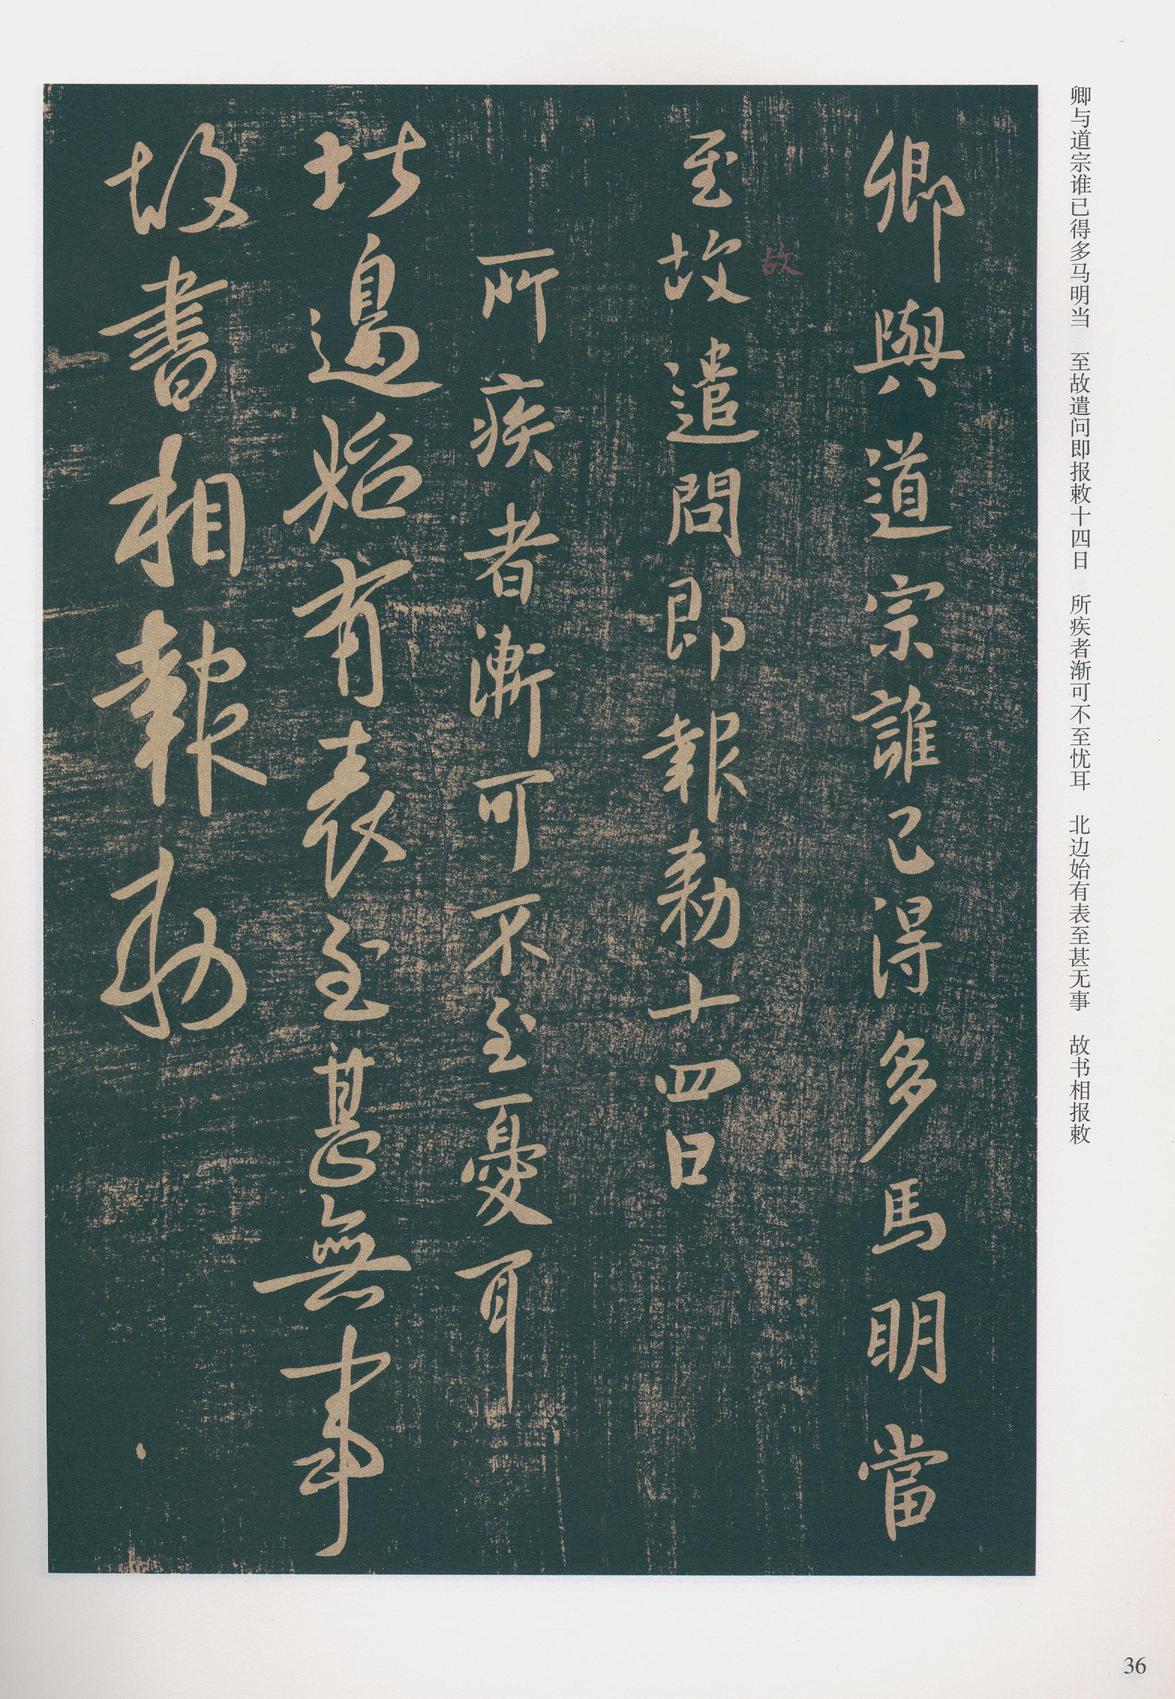 卿与道宗谁已得多马明当　至故遣问即报敕十四日　所疾者渐可不至忧耳　北边始有表至甚无事　故书相报敕
卿與道宗誰已得多馬明當
故
至故遣問即報勅十四日
所疾者漸可不至憂耳
北邊始有表至甚無事
故書相報敕
36